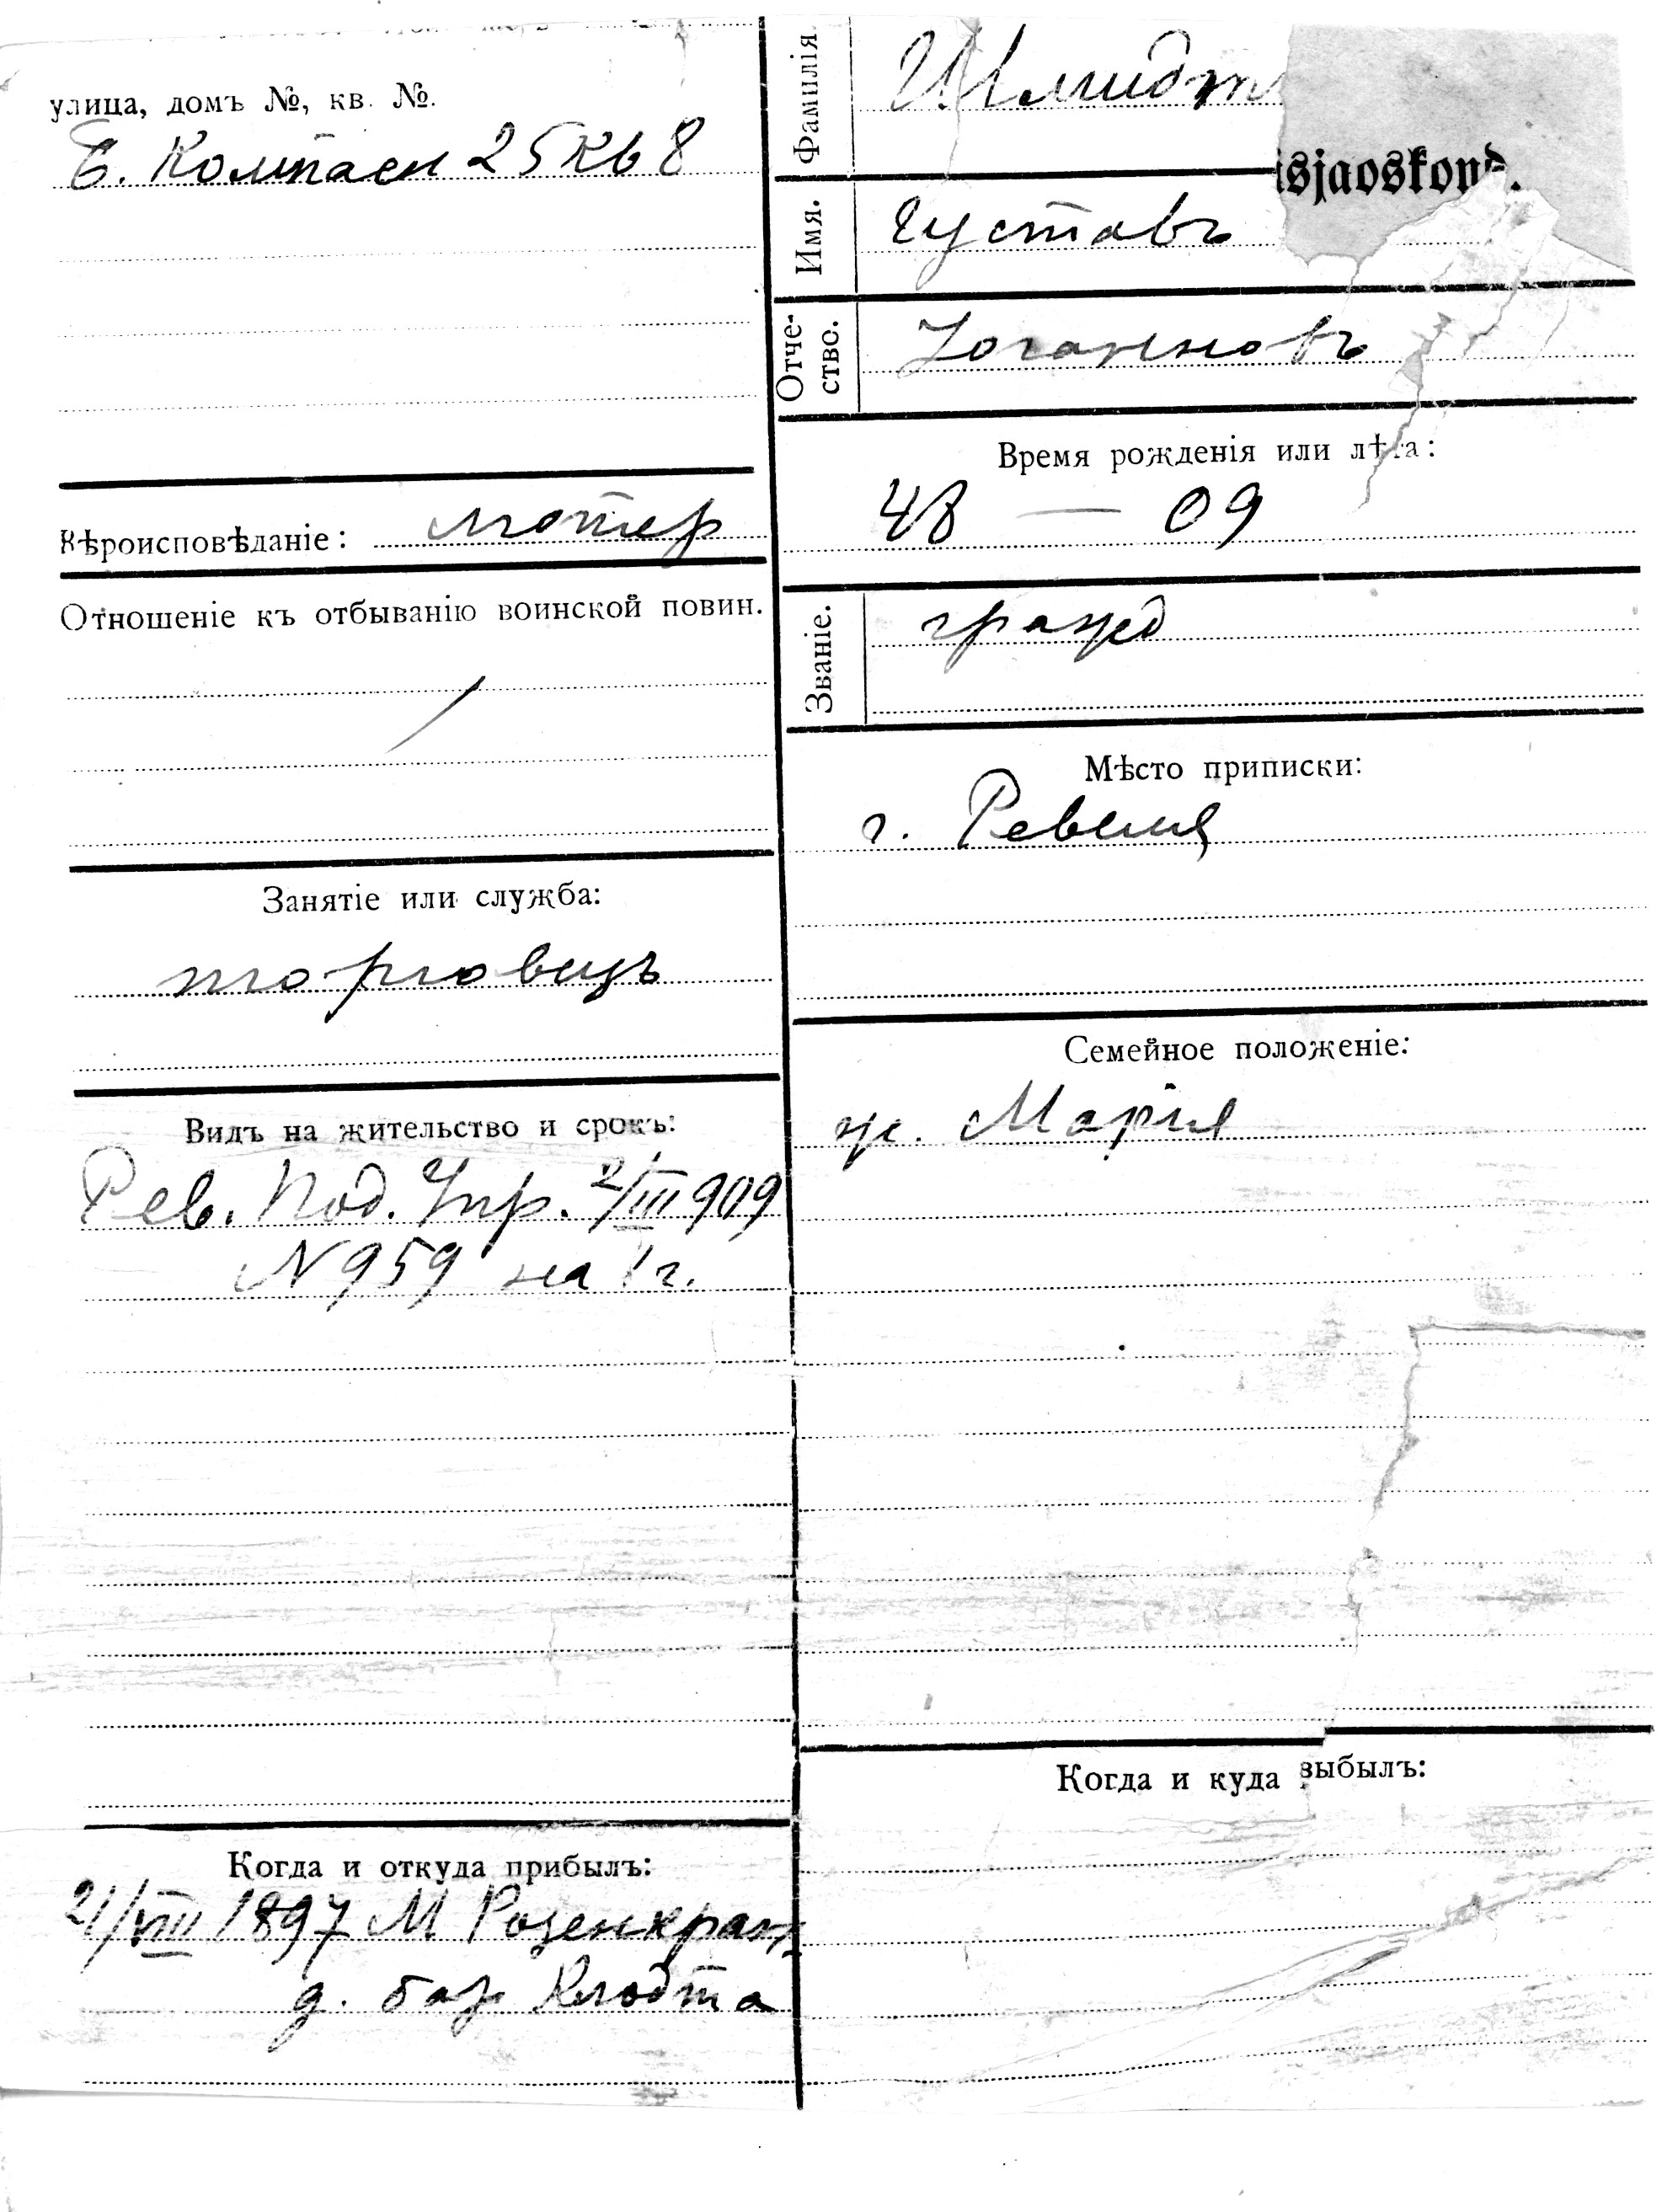 улица, домъ №, кв. №.
Б. Компасн 25 кв 8
Вѣроисповѣданіе: лютер
Отношеніе къ отбыванію воинской повин.
Занятіе или служба:
торговецъ
Видъ на жительство и срокъ:
Рев. Под. Упр. 2/III 909
N 959 на 1 г.
Когда и откуда прибылъ:
21/VIII 1897 М Розенкранц
д. бар Клодта
Фамилія Шмидт
isjaoskond.
Имя. Густавъ
Отче-
ство. Иоганновъ
Время рожденія или лѣта:
48 — 09
Званіе. гражд
Мѣсто приписки:
г. Ревеля
Семейное положеніе:
ж. Марія
Когда и куда выбылъ: